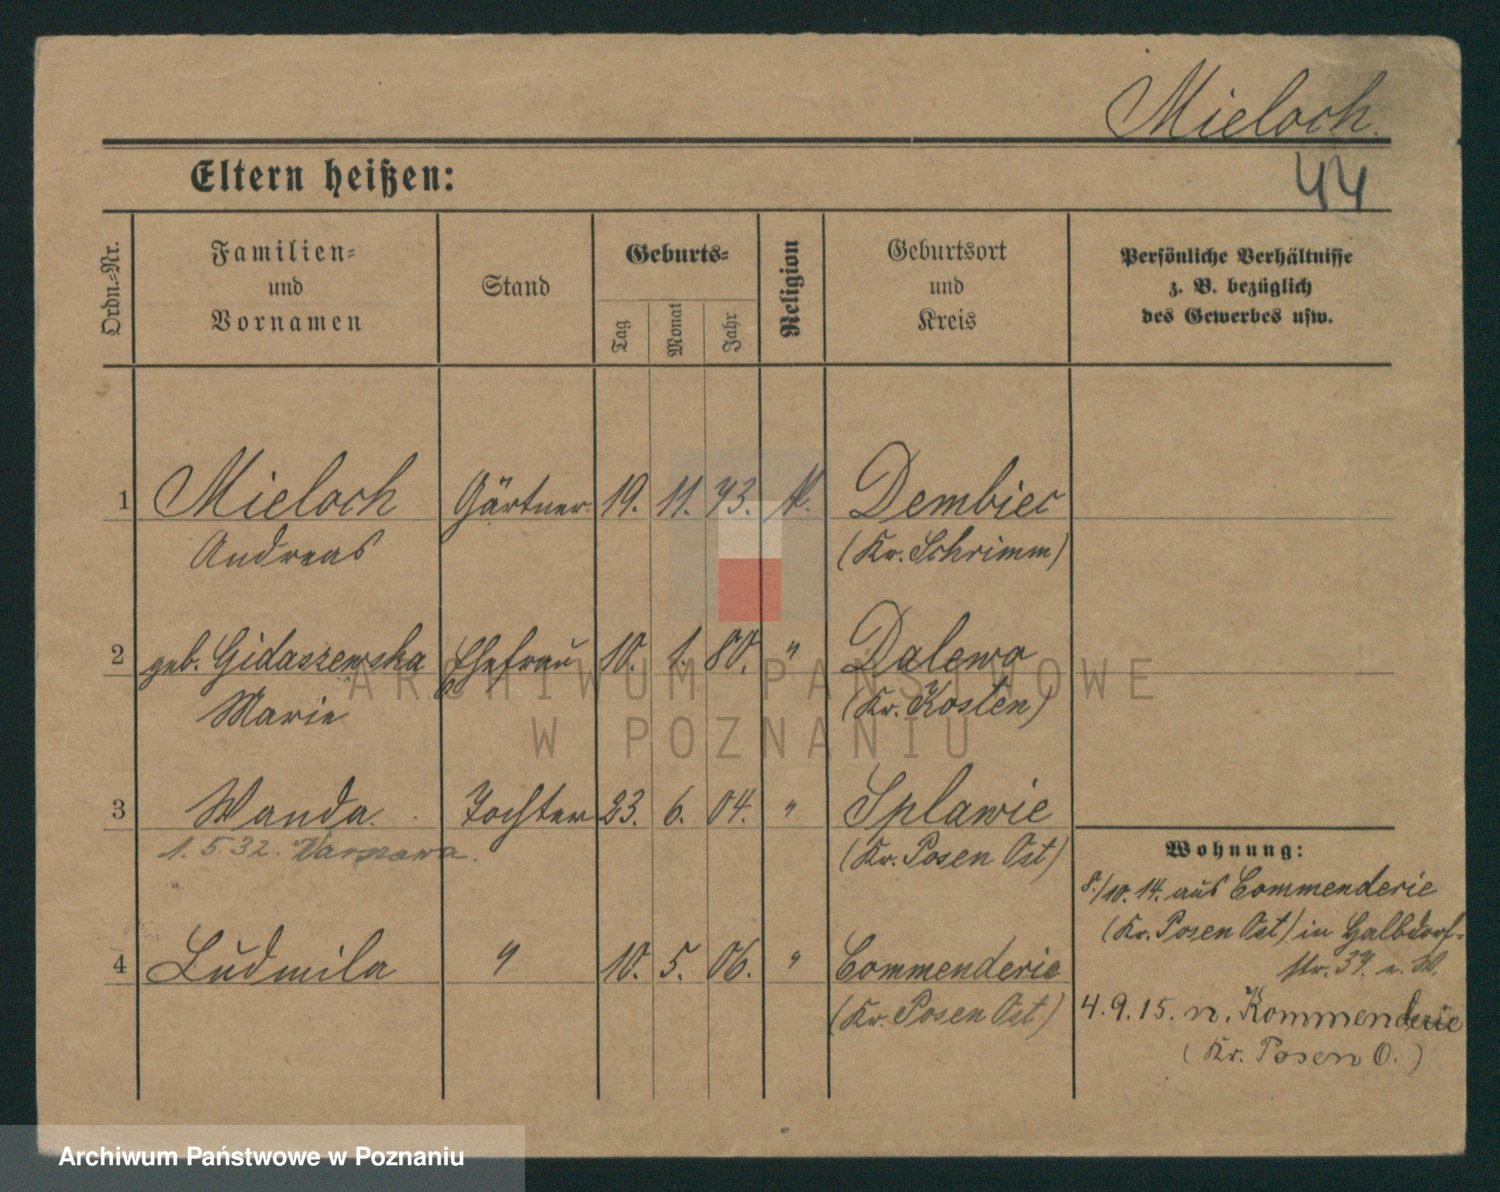 Mieloch.
44
Eltern heißen:
Ordn.-Nr.
Familien- und Vornamen
Stand
Geburts-
Tag
Monat
Jahr
Religion
Geburtsort und Kreis
Persönliche Verhältnisse
z. B. bezüglich
des Gewerbes usw.
1 Mieloch Gärtner 19. 11. 73. K. Dembiec
Andreas (Kr. Schrimm)
2 geb. Gidaszewska Ehefrau 10. 1. 80. " Dalewo
Marie (Kr. Kosten)
3 Wanda. Tochter 23. 6. 04. " Splawie
1.5.32. Warszawa. (Kr. Posen Ost)
4 Ludmila " 10. 5. 06. " Commenderie
(Kr. Posen Ost)
Wohnung:
8./10. 14. aus Commenderie
(Kr. Posen Ost) in
str. 37.
4.9.15. n. Kommenderie
(Kr. Posen O.)
ARCHIWUM PAŃSTWOWE
W POZNANIU
Archiwum Państwowe w Poznaniu